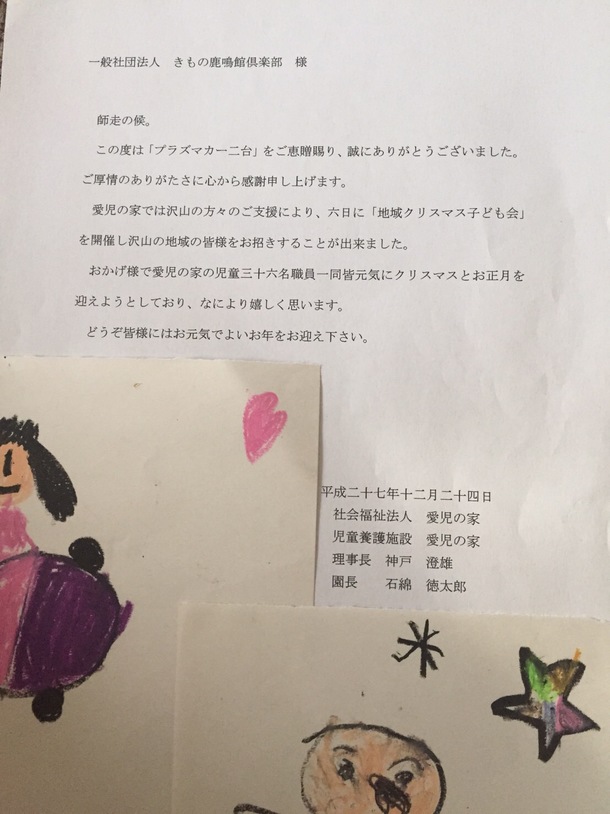 一般社団法人　きもの鹿鳴館倶楽部　様
師走の候。
この度は「プラズマカー二台」をご恵贈賜り、誠にありがとうございました。
ご厚情のありがたさに心から感謝申し上げます。
愛児の家では沢山の方々のご支援により、六日に「地域クリスマス子ども会」
を開催し沢山の地域の皆様をお招きすることが出来ました。
おかげ様で愛児の家の児童三十六名職員一同皆元気にクリスマスとお正月を
迎えようとしており、なにより嬉しく思います。
どうぞ皆様にはお元気でよいお年をお迎え下さい。
平成二十七年十二月二十四日
社会福祉法人　愛児の家
児童養護施設　愛児の家
理事長　神戸　澄雄
園長　　石綿　徳太郎